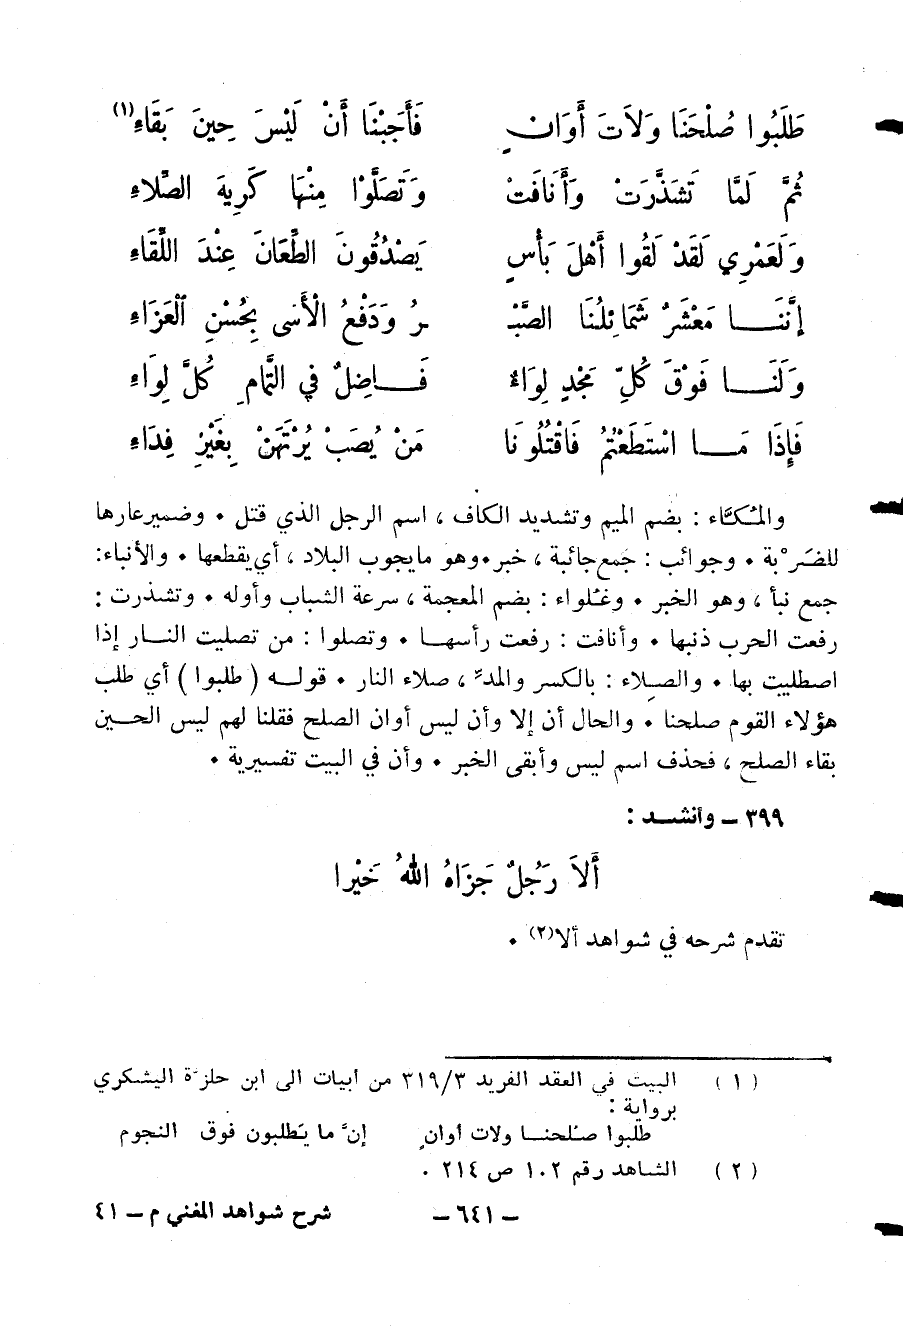 طَلَبُوا صُلْحَنَا وَلاَتَ أَوَانٍ فَأَجَبْنَا أَنْ لَيْسَ حِينَ بَقَاءِ(١)
ثُمَّ لَمَّا تَشَذَّرَتْ وَأَنَافَتْ وَتَصَلَّوْا مِنْهَا كَرِيهَ الصِّلاءِ
وَلَعَمْرِي لَقَدْ لَقُوا أَهْلَ بَأْسٍ يَصْدُقُونَ الطِّعَانَ عِنْدَ اللِّقَاءِ
إِنَّنَا مَعْشَرٌ شَمَائِلُنَا الصَّبْـ ـرُ وَدَفْعُ الْأَسَى بِحُسْنِ الْعَزَاءِ
وَلَنَا فَوْقَ كُلِّ مَجْدٍ لِوَاءٌ فَاضِلٌ في التَّمامِ كُلَّ لِوَاءِ
فَإِذَا مَا اسْتَطَعْتُمُ فَاقْتُلُونَا مَنْ يُصَبْ يُرْتَهَنْ بِغَيْرِ فِدَاءِ
والمُكَّاء : بضم الميم وتشديد الكاف ، اسم الرجل الذي قتل . وضميرعارها
للضَرْبة . وجوائب : جمع جائبة ، خبر. وهو ما يجوب البلاد ، أي يقطعها . والأنباء:
جمع نبأ ، وهو الخبر . وغُلواء : بضم المعجمة ، سرعة الشباب وأوله . وتشذرت :
رفعت الحرب ذنبها . وأنافت : رفعت رأسها . وتصلوا : من تصليت النار إذا
اصطليت بها . والصِلاء : بالكسر والمدّ ، صلاء النار . قوله ( طلبوا ) أي طلب
هؤلاء القوم صلحنا . والحال أن إلا وأن ليس أوان الصلح فقلنا لهم ليس الحين
بقاء الصلح ، فحذف اسم ليس وأبقى الخبر . وأن في البيت تفسيرية .
٣٩٩ – وأنشد :
أَلاَ رَجُلٌ جَزَاهُ اللهُ خَيْرا
تقدم شرحه في شواهد ألا(٢) .
( ١ ) البيت في العقد الفريد ٣١٩/٣ من أبيات الى ابن حلزَة اليشكري
برواية :
طلبوا صُلحنا ولات أوانٍ إنَّ ما يَطلبون فوق النجوم
( ٢ ) الشاهد رقم ١٠٢ ص ٢١٤ .
– ٦٤١ – شرح شواهد المغني م – ٤١